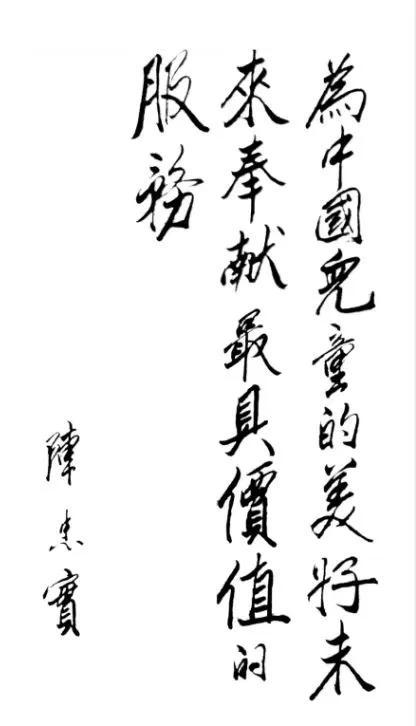 為中國兒童的美好未
來奉献最具價值的
服務
陳忠實